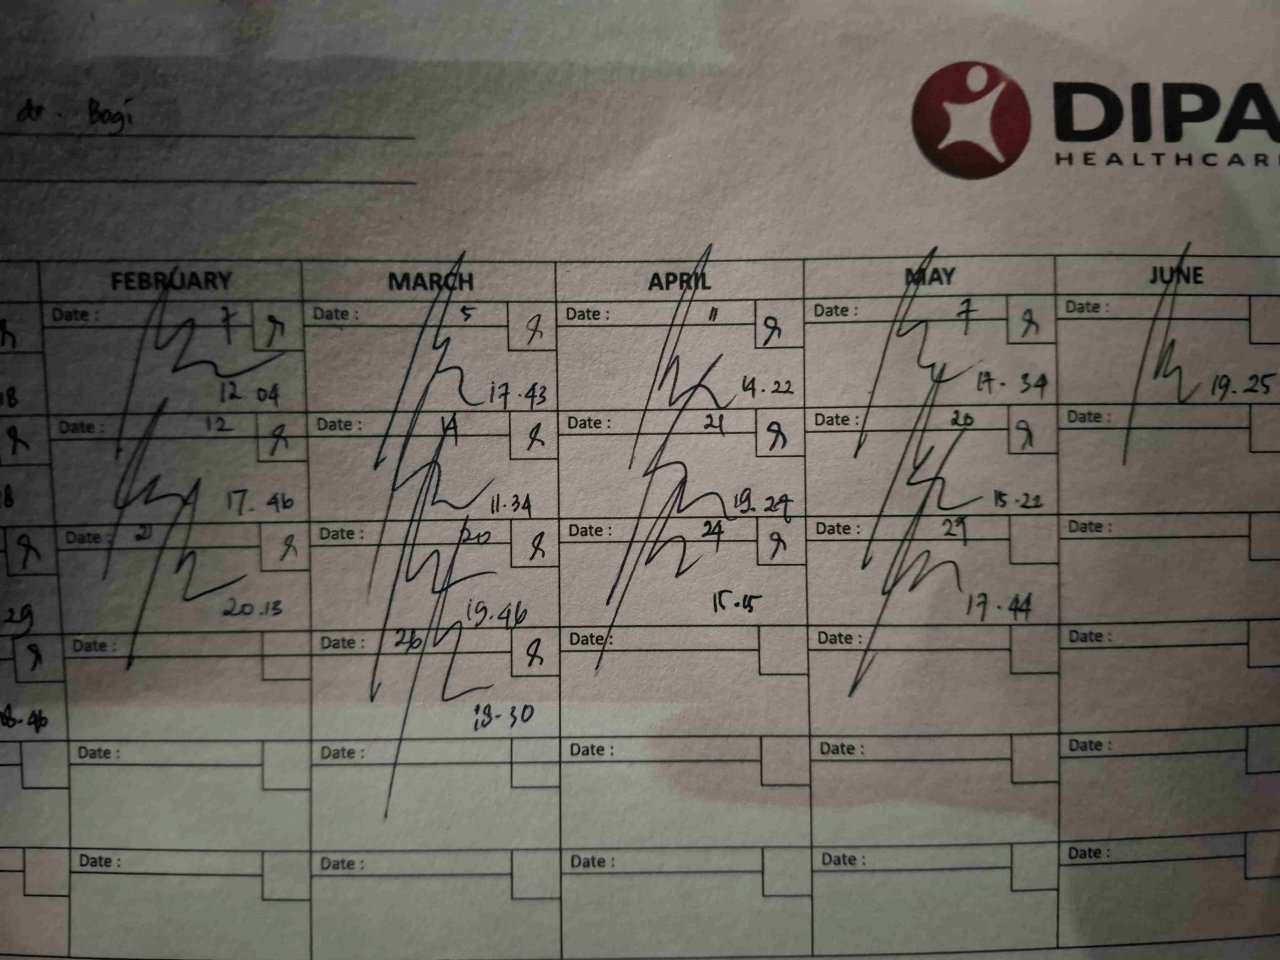 dr. Bagi
DIPA
HEALTHCAR
FEBRUARY MARCH APRIL MAY JUNE
Date : 7 Date : 5 Date : 11 Date : 7 Date :
18 12 04 17.43 14.22 17.34 19.25
Date : 12 Date : 14 Date : 21 Date : 20 Date :
18 17.46 11.34 19.24 15.22
Date : 21 Date : 20 Date : 24 Date : 29 Date :
29 20.13 19.46 15.15 17.44
Date : Date : 26 Date : Date : Date :
18.46 18-30
Date : Date : Date : Date : Date :
Date : Date : Date : Date : Date :